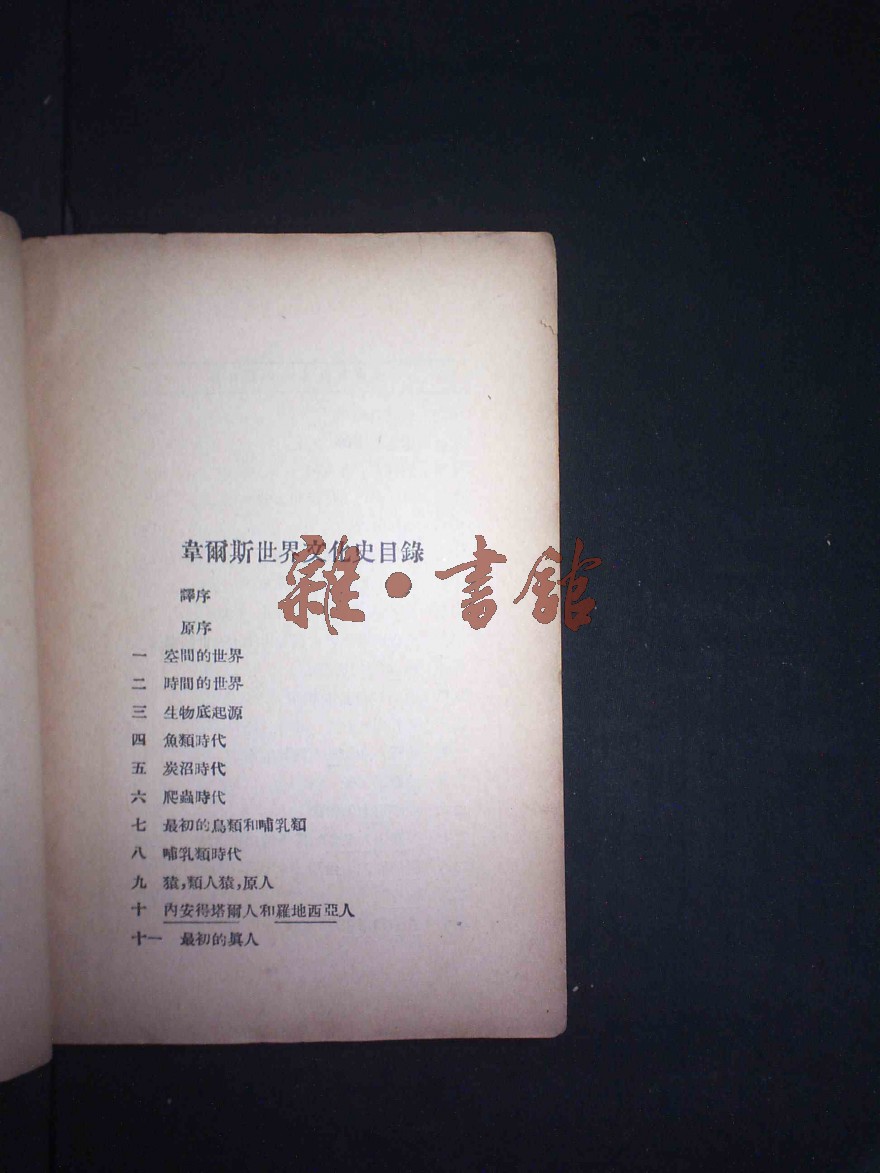 韋爾斯世界文化史目錄
譯序
原序
一 空間的世界
二 時間的世界
三 生物底起源
四 魚類時代
五 炭沼時代
六 爬蟲時代
七 最初的鳥類和哺乳類
八 哺乳類時代
九 猿,類人猿,原人
十 內安得塔爾人和羅地西亞人
十一 最初的眞人
雜·書館